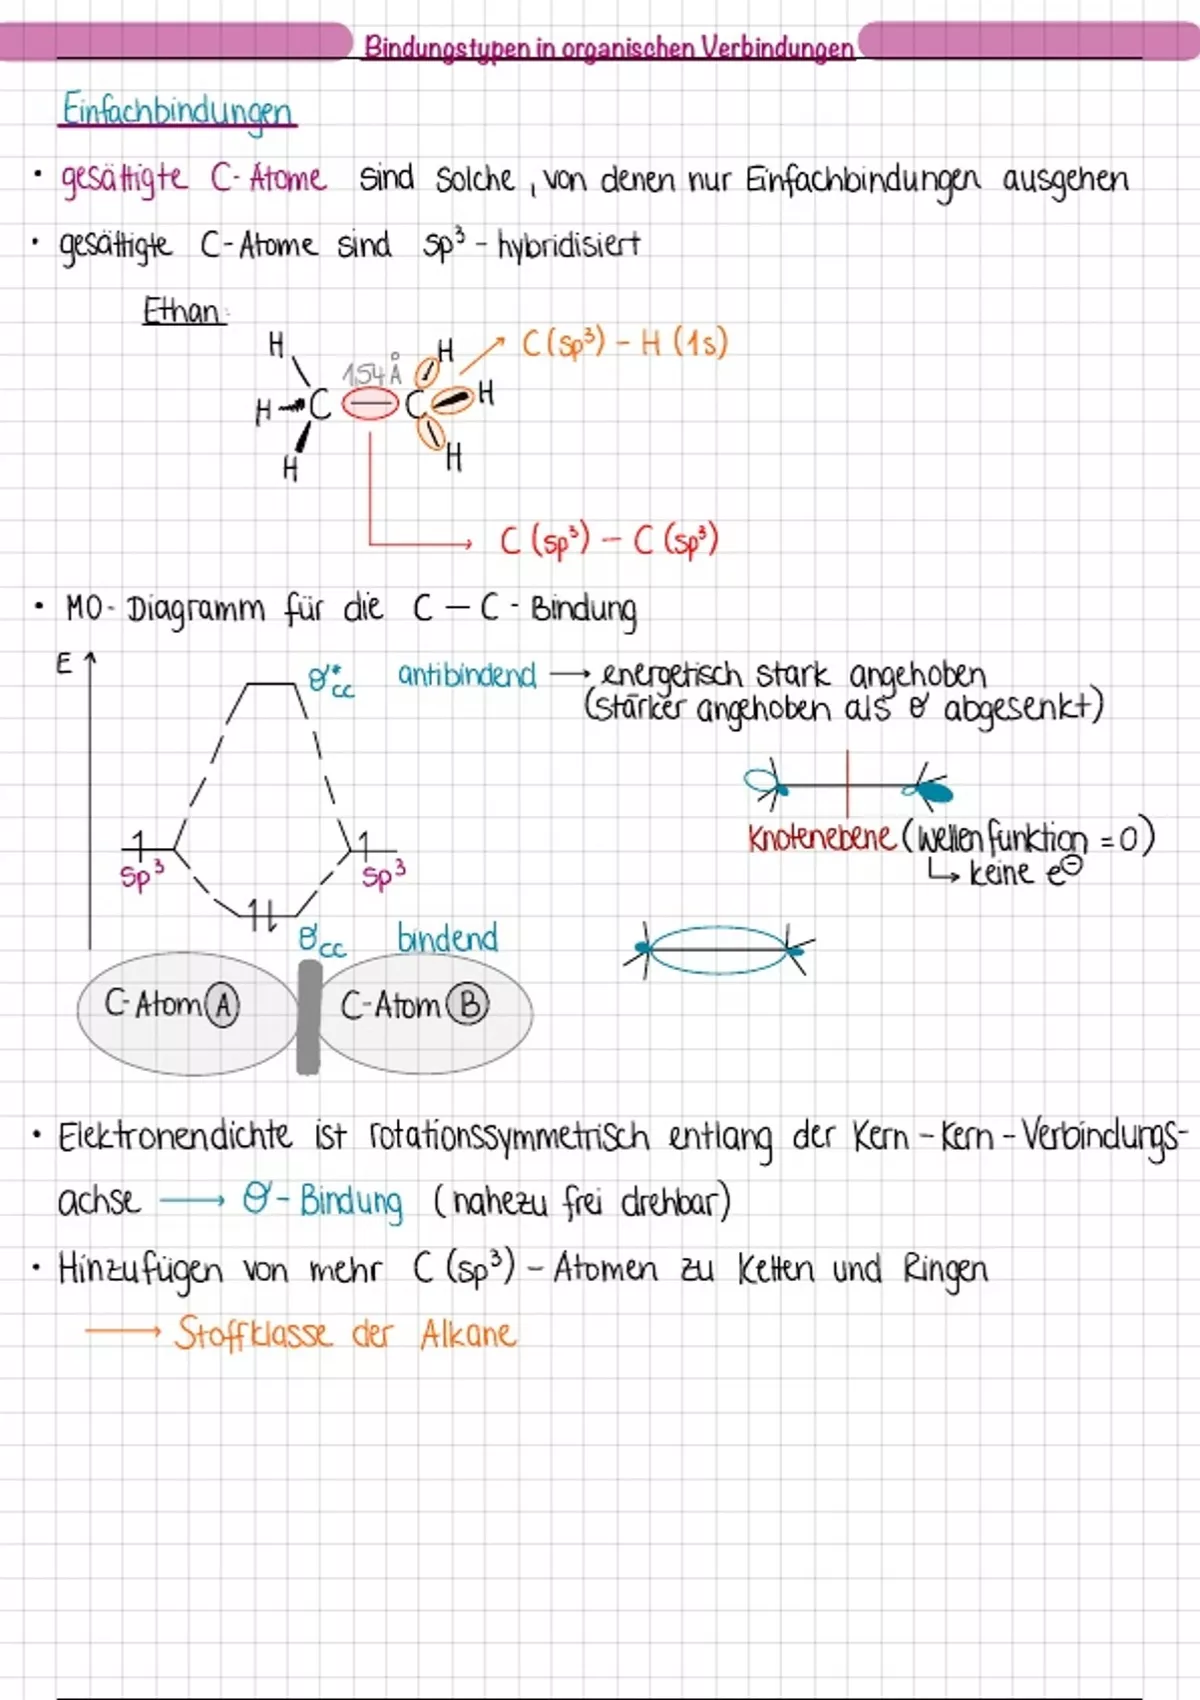 Bindungstypen in organischen Verbindungen
Einfachbindungen
• gesättigte C-Atome sind solche, von denen nur Einfachbindungen ausgehen
• gesättigte C-Atome sind sp³-hybridisiert
Ethan:
H
H
C(sp³) - H (1s)
1,54 Å
H
C
C
H
H
H
C (sp³) - C (sp³)
• MO-Diagramm für die C – C - Bindung
E
σ*cc antibindend → energetisch stark angehoben
(stärker angehoben als σ abgesenkt)
1
1
sp³
sp³
Knotenebene (Wellenfunktion = 0)
↳ keine e⊖
1l
σcc bindend
C-Atom A
C-Atom B
• Elektronendichte ist rotationssymmetrisch entlang der Kern-Kern-Verbindungs-
achse → σ-Bindung (nahezu frei drehbar)
• Hinzufügen von mehr C (sp³) - Atomen zu Ketten und Ringen
→ Stoffklasse der Alkane